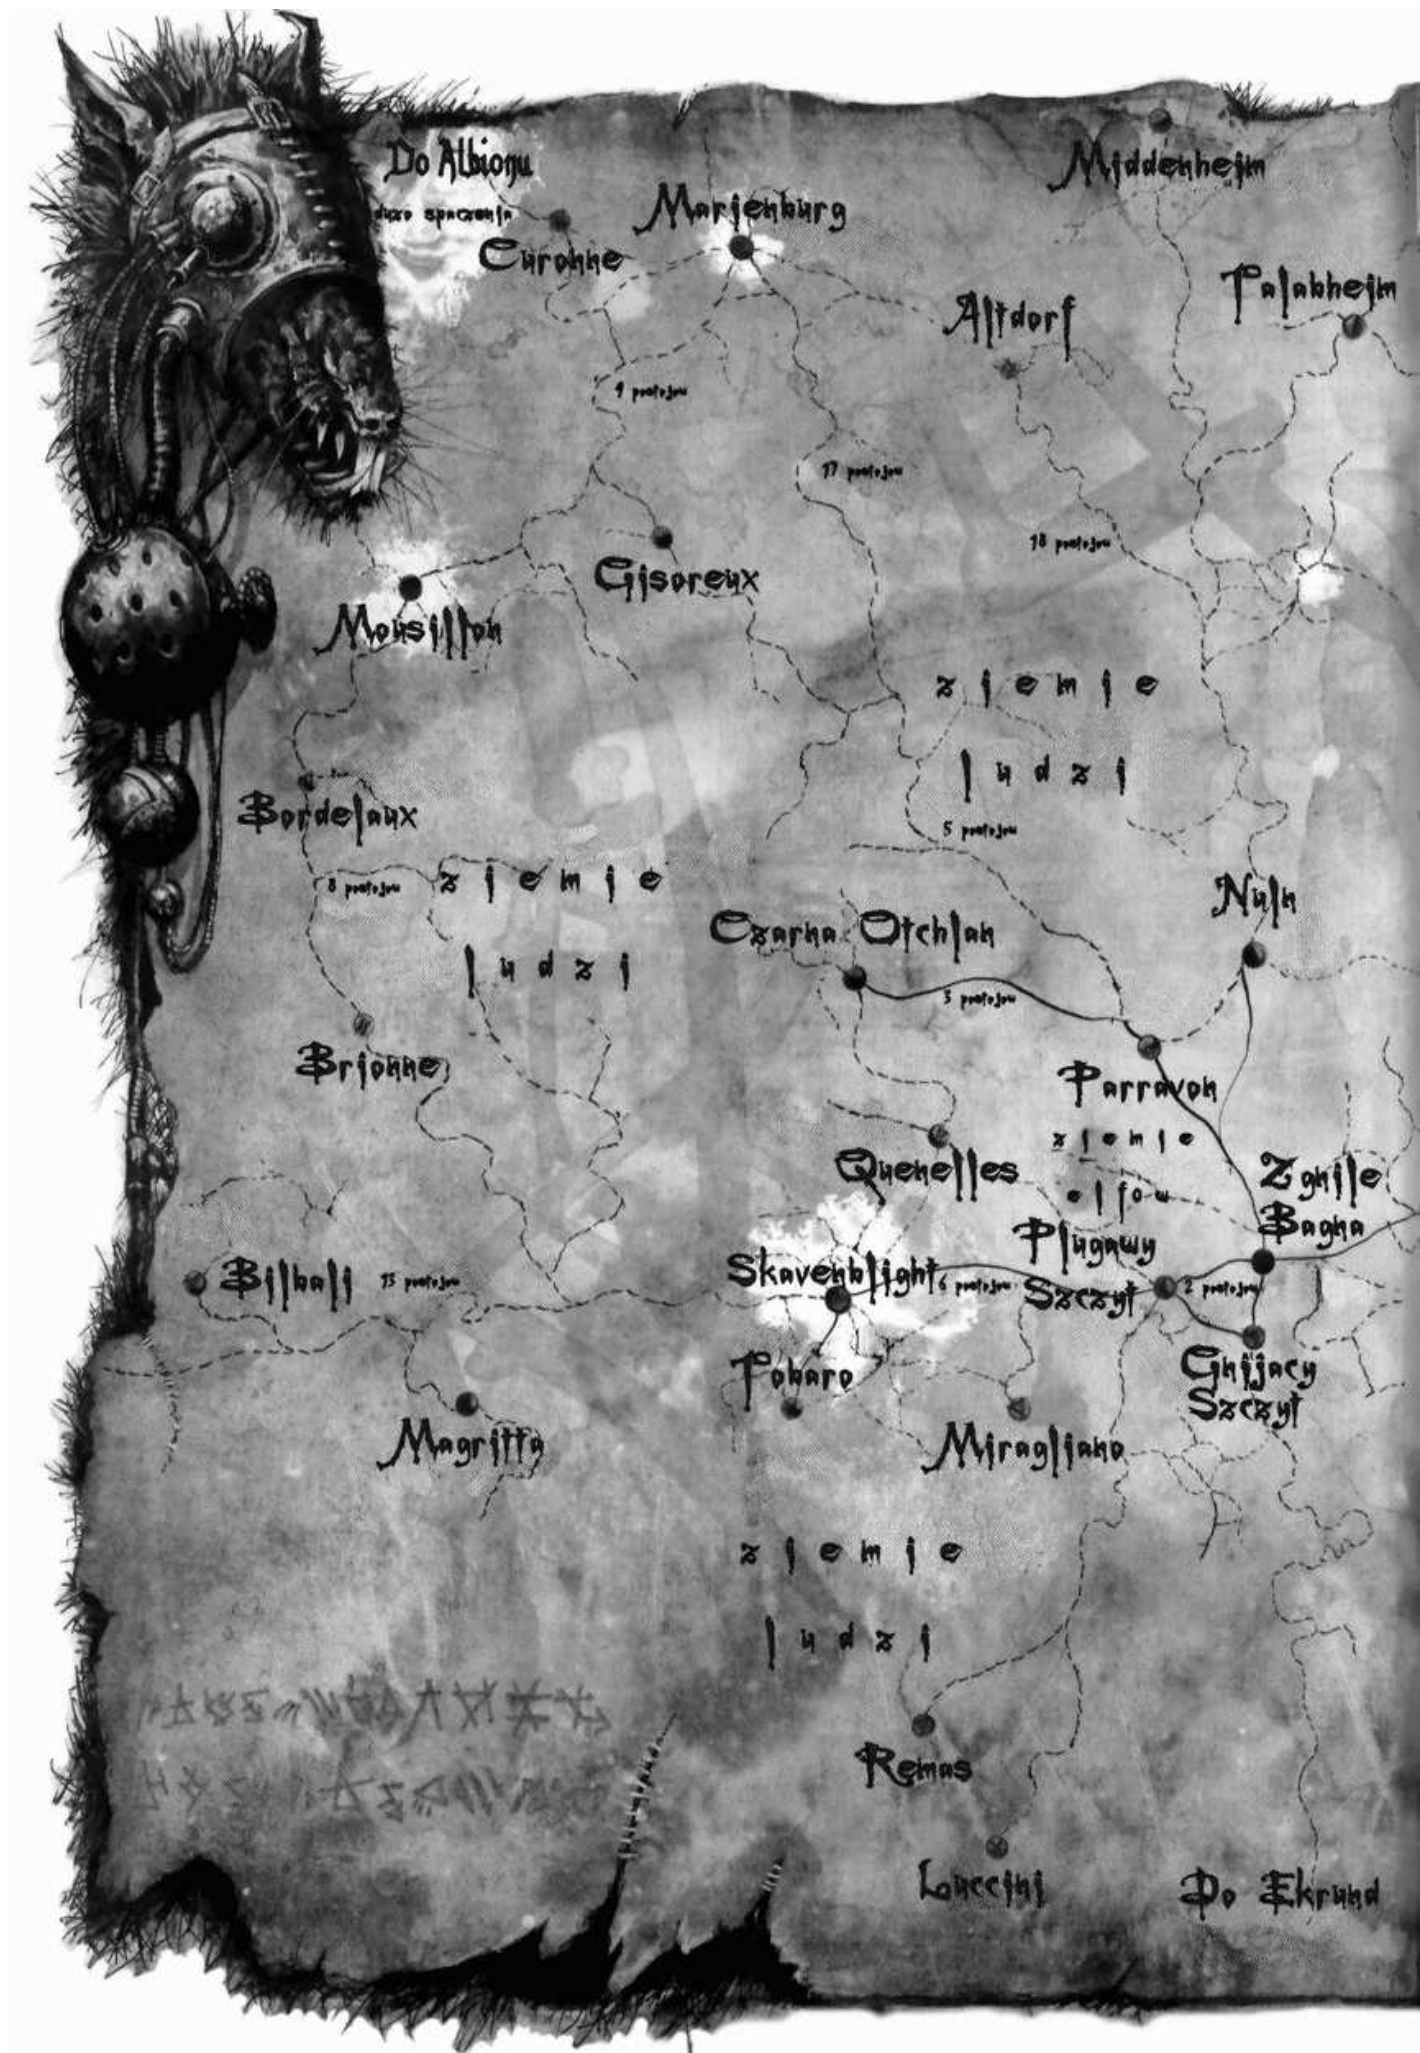 Do Albionu
dużo spaczenia
Curonne
Marienburg
Middenheim
Talabheim
Altdorf
9 postojow
17 postojow
18 postojow
Gisoreux
Mousillon
ziemie
ludzi
Bordelaux
5 postojow
8 postojow
ziemie
ludzi
Nuln
Czarna Otchlan
3 postojow
Brionne
Parravon
ziemie
elfow
Quenelles
Zgnile
Bagna
Plugawy
Szczyt
Skavenblight
6 postojow
2 postojow
Bilbali
15 postojow
Tobaro
Gnijacy
Szczyt
Magritta
Miragliano
ziemie
ludzi
Remas
Luccini
Do Ekrund